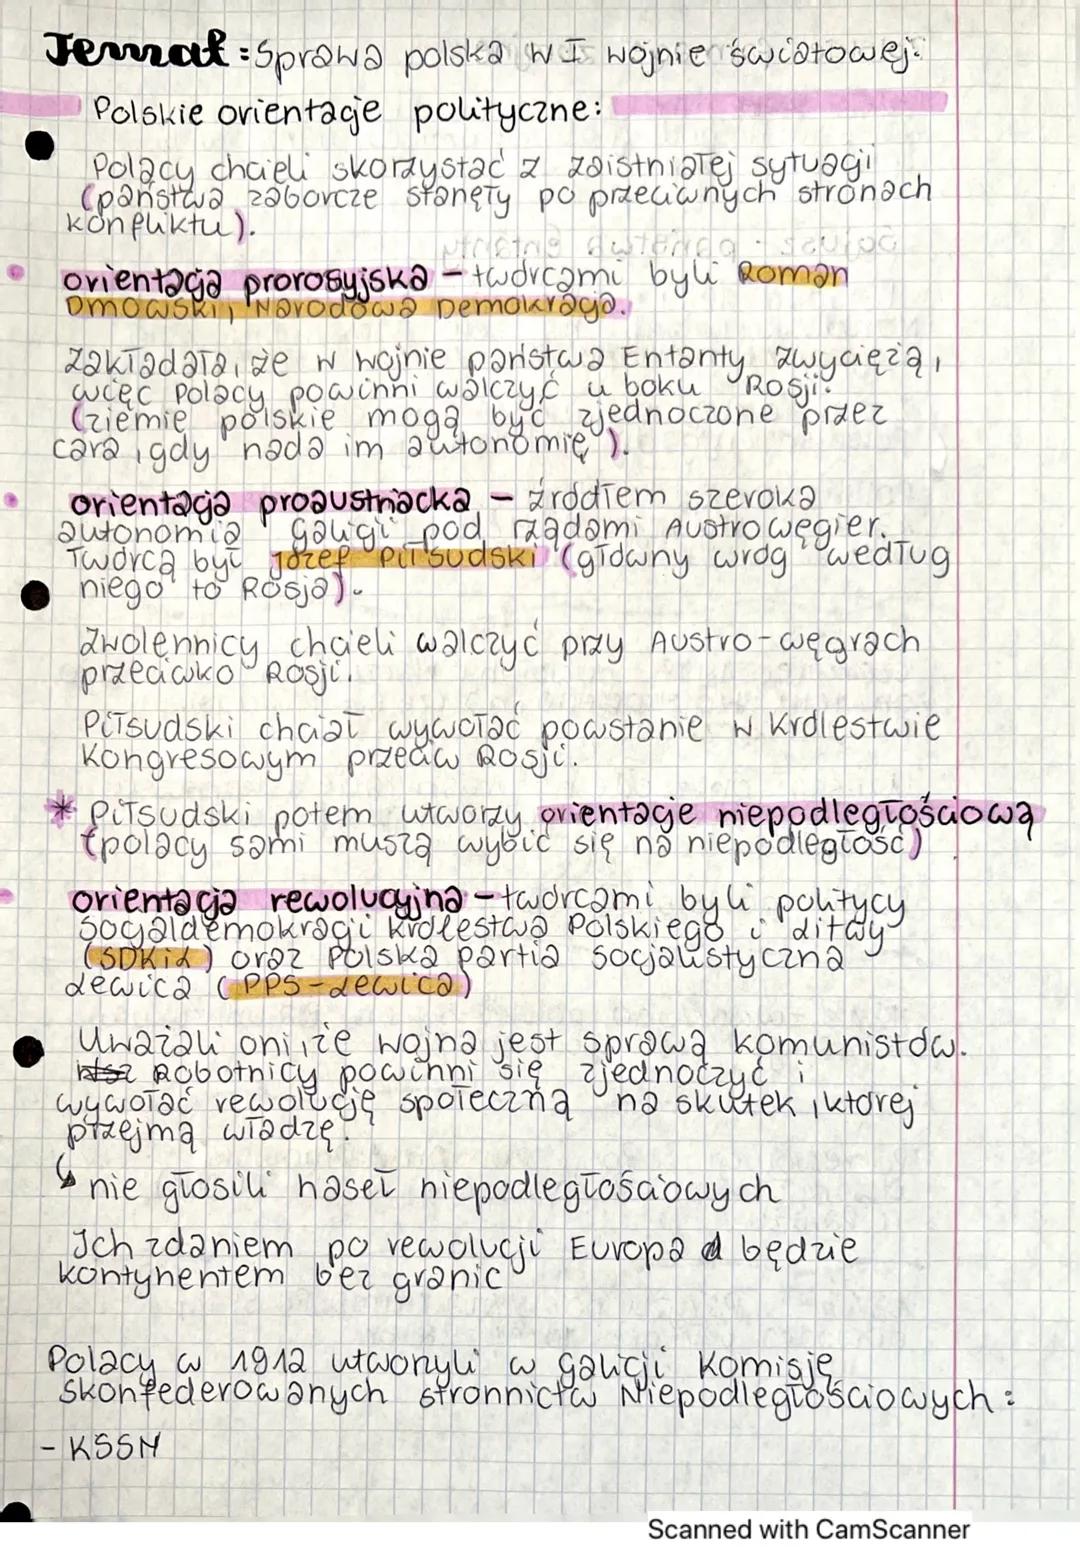 Temat: Sprawa polska w I wojnie światowej.
Polskie orientacje polityczne:
Polacy chcieli skorzystać z zaistniałej sytuacji
(państwa zaborcze stanęły po przeciwnych stronach
konfliktu).
orientacja prorosyjska - twórcami byli Roman
Dmowski, Narodowa Demokracja.
Zakładała, że w wojnie państwa Ententy zwyciężą,
więc Polacy powinni walczyć u boku Rosji.
(ziemie polskie mogą być zjednoczone przez
cara, gdy nada im autonomię).
orientacja proaustriacka - źródłem szeroka
autonomia Galicji pod rządami Austrowęgier.
Twórcą był Józef Piłsudski (główny wróg według
niego to Rosja).
Zwolennicy chcieli walczyć przy Austro-węgrach
przeciwko Rosji.
Piłsudski chciał wywołać powstanie w Królestwie
Kongresowym przeciw Rosji.
* Piłsudski potem utworzy orientacje niepodległościową
(polacy sami muszą wybić się na niepodległość)
orientacja rewolucyjna - twórcami byli politycy
Socjaldemokracji Królestwa Polskiego i Litwy
(SDKiL) oraz Polska partia socjalistyczna
Lewica (PPS-Lewica)
Uważali oni, że wojna jest sprawą komunistów.
Robotnicy powinni się zjednoczyć i
wywołać rewolucję społeczną na skutek, której
przejmą władzę.
↳ nie głosili haseł niepodległościowych
Ich zdaniem po rewolucji Europa będzie
kontynentem bez granic
Polacy w 1912 utworzyli w Galicji Komisję
skonfederowanych stronnictw Niepodległościowych:
- KSSN
Scanned with CamScanner